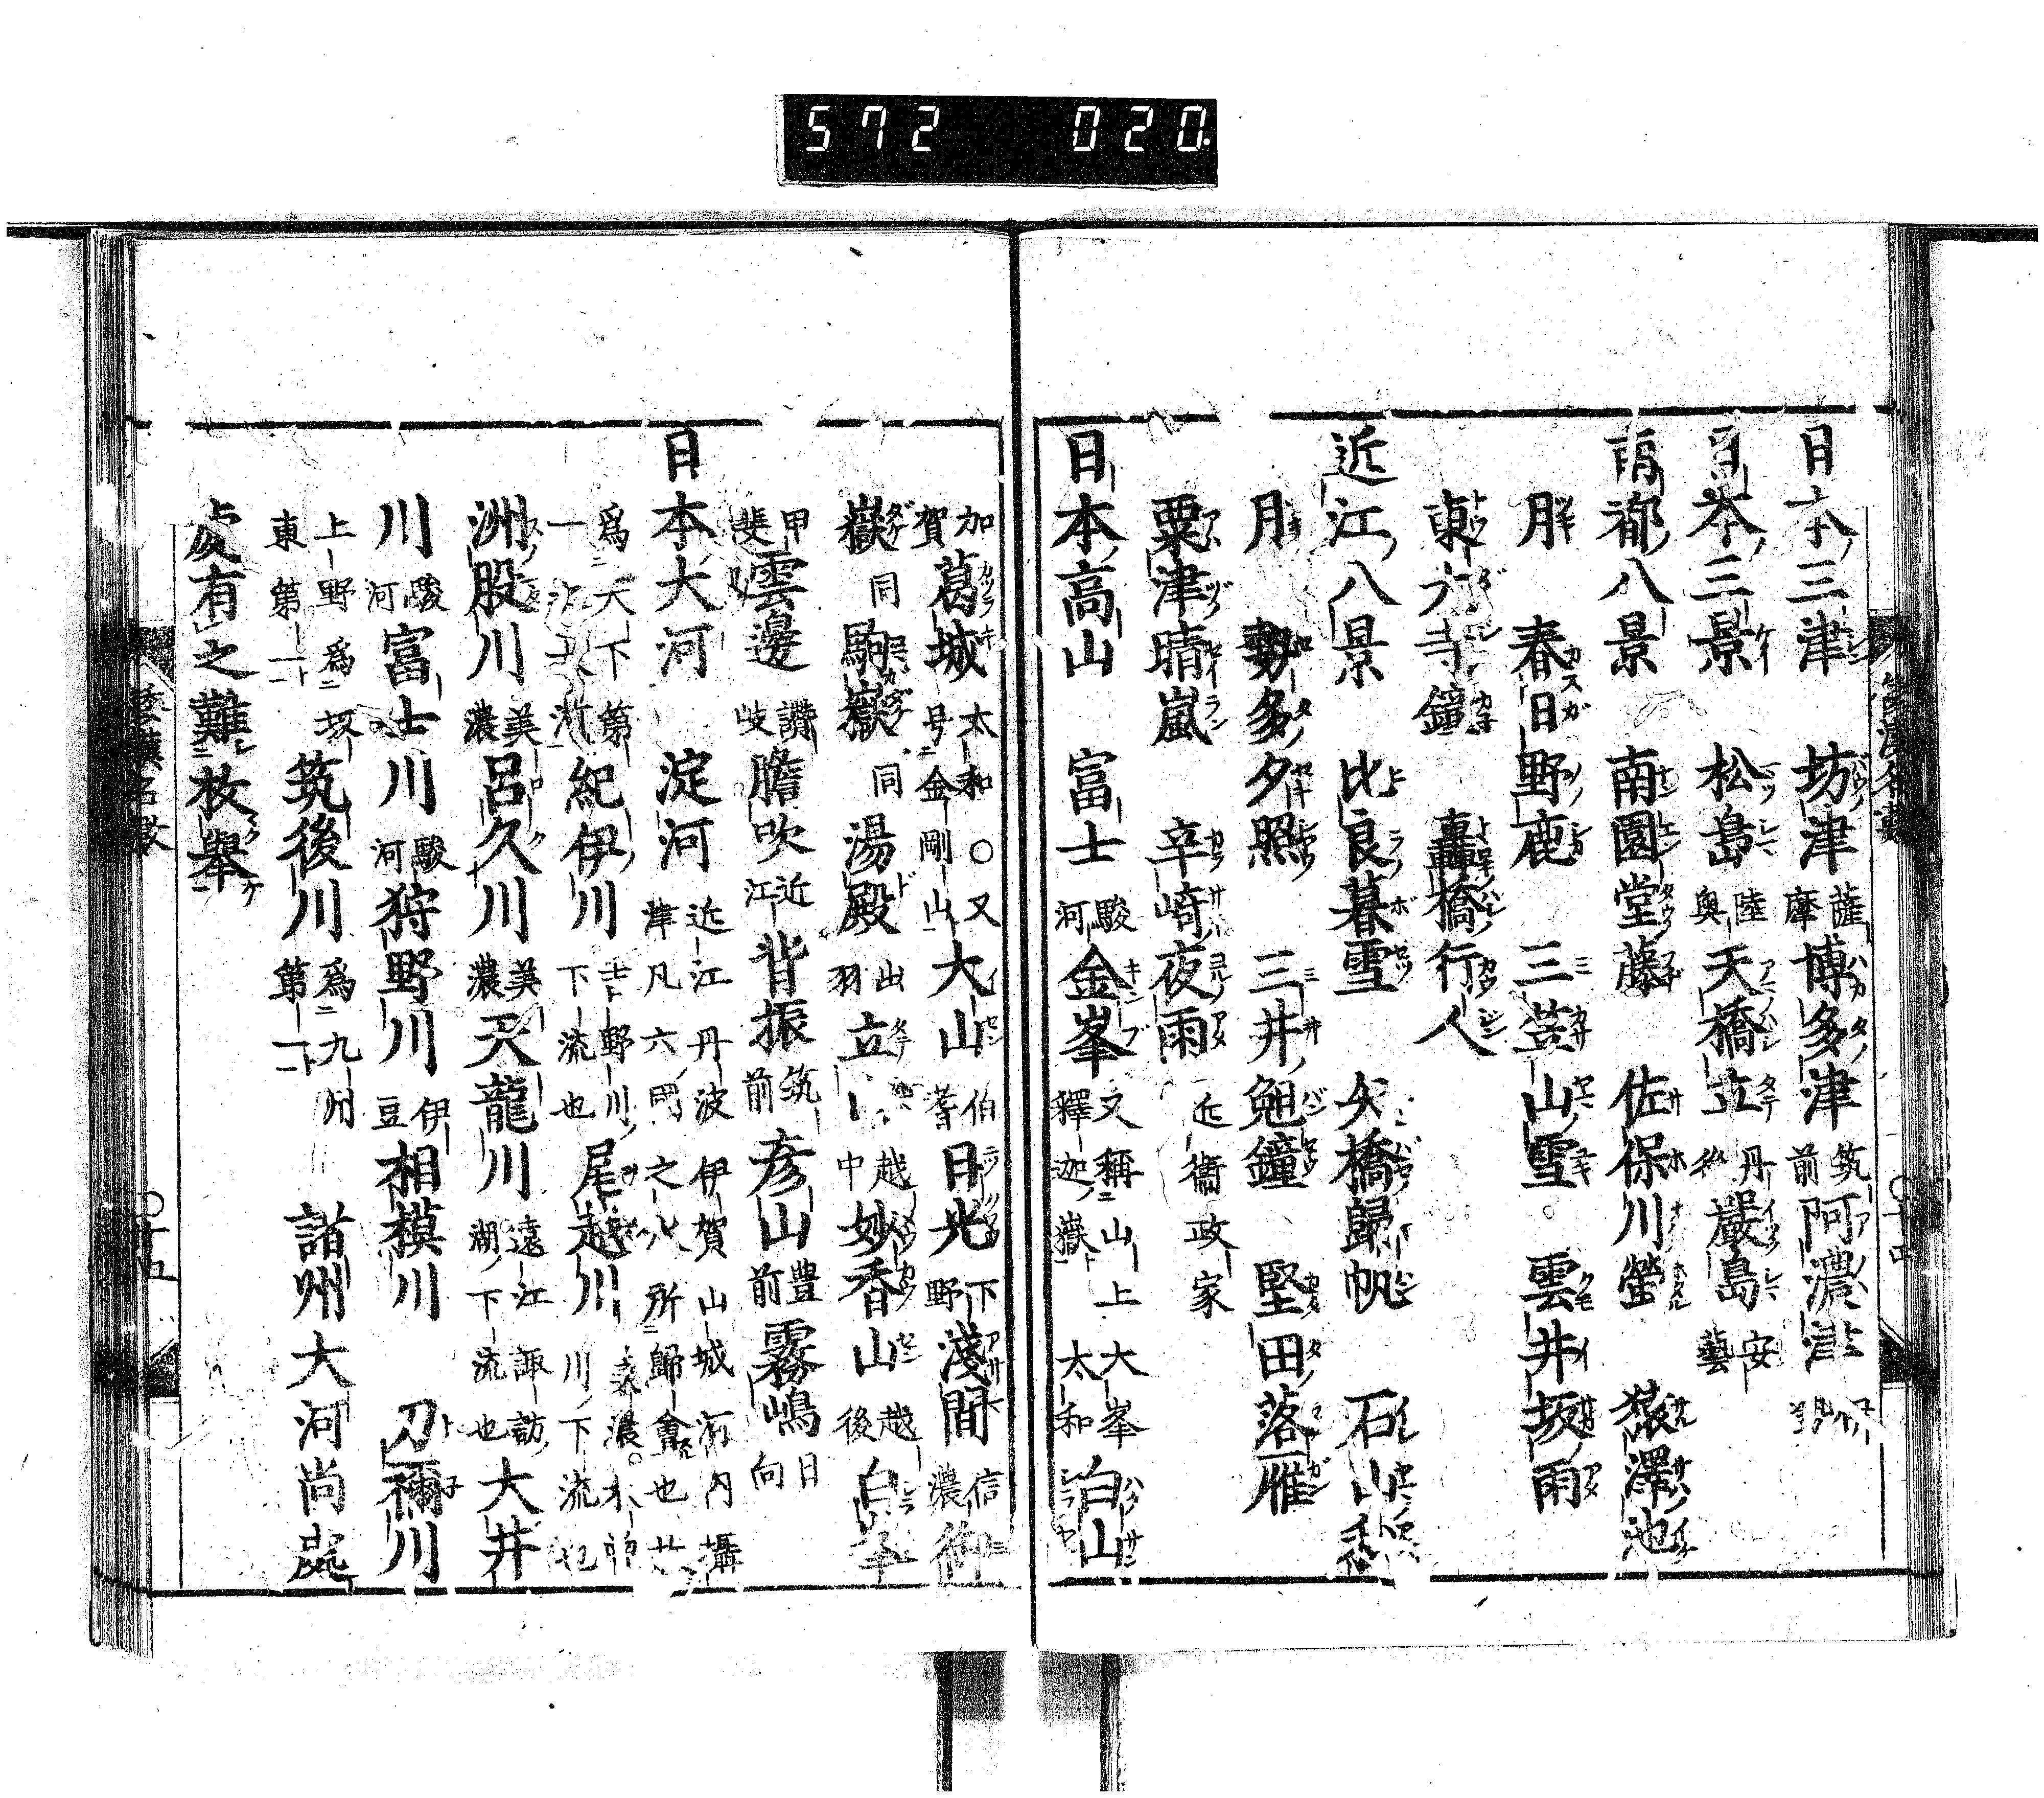 572 020.
日本三津 坊津薩摩博多津筑前阿濃津
日本三景 松島陸奥天橋立丹後嚴島安藝
南都八景 南圓堂藤 佐保川螢 猿澤池
月 春日野鹿 三笠山雪 雲井坂雨
東大寺鐘 轟橋行人
近江八景 比良暮雪 矢橋歸帆 石山秋
月 勢多夕照 三井晩鐘 堅田落雁
粟津晴嵐 辛崎夜雨 近衞政家
日本高山 富士駿河金峯又稱山上大峯釋迦嶽太和白山
加賀葛城太和○又号金剛山大山伯耆日光下野淺間信濃御
嶽同駒嶽同湯殿出羽立山越中妙香山越後白峯
甲斐雲邊讚岐膽吹近江背振筑前彦山豊前霧嶋日向
日本大河 淀河近江丹波伊賀山城河内攝津凡六國之八所歸會也
爲天下第一紀伊川吉野川下流也尾越川川下流也
洲股川美濃呂久川美濃天龍川遠江諏訪湖下流也大井
川駿河富士川駿河狩野川伊豆相模川 刀禰川
上野爲坂東第一筑後川爲九州第一 諸州大河尚處
處有之難枚舉